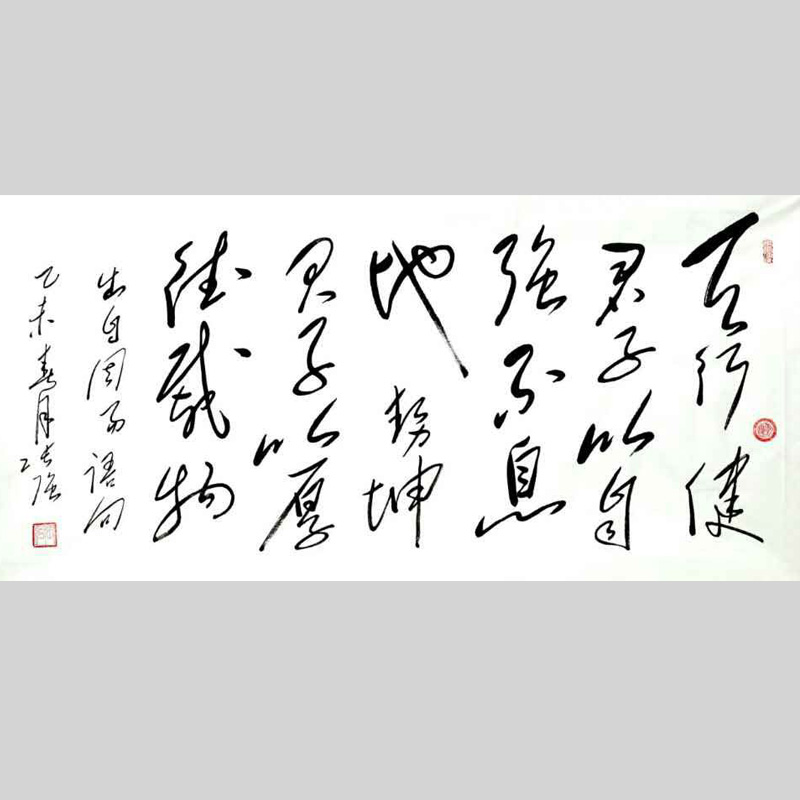 天行健
君子以自
强不息
地势坤
君子以厚
德载物
出自周易语句
乙未春月